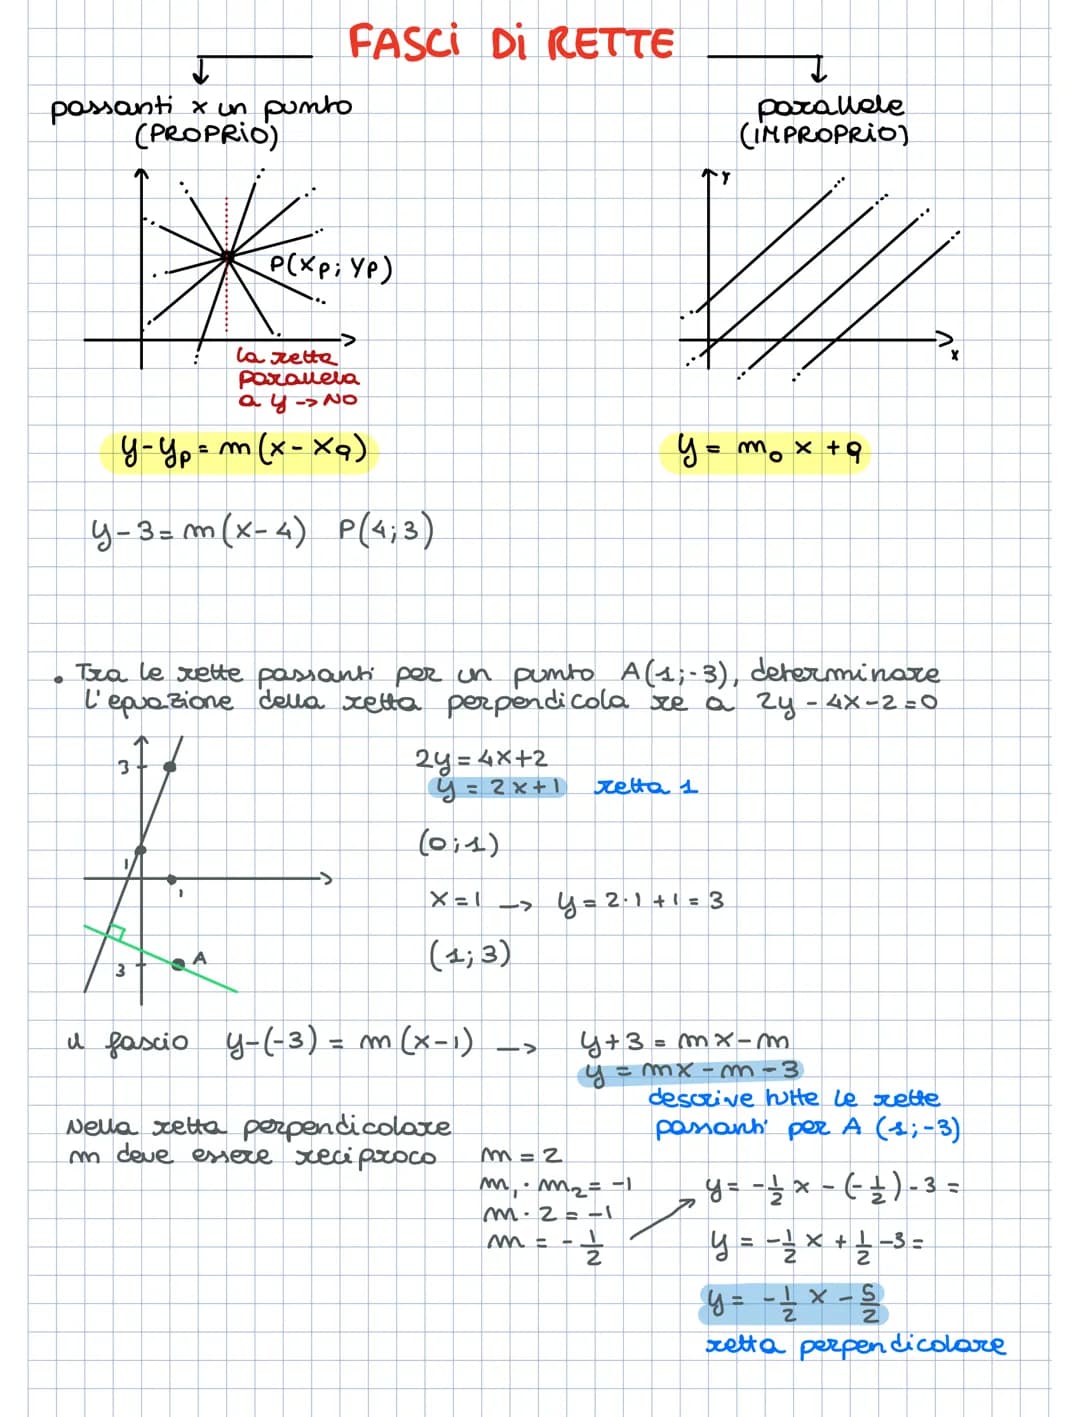 FASCI DI RETTE
passanti x un punto
(PROPRIO)
parallele
(IMPROPRIO)
P(xp; yp)
la retta
parallela
a y -> NO
Y
x
y-yp = m(x-xq)
y = m₀ x + q
y-3 = m(x-4) P(4;3)
• Tra le rette passanti per un punto A(1;-3), determinare
l'equazione della retta perpendicola re a 2y-4x-2=0
3
1
1
3
A
2y = 4x+2
y = 2x+1 retta 1
(0;1)
x=1 -> y = 2·1+1 = 3
(1;3)
il fascio y-(-3) = m(x-1) -> y+3 = mx-m
y = mx-m-3
descrive tutte le rette
passanti per A (1;-3)
Nella retta perpendicolare
m deve essere reciproco
m = 2
m₁·m₂ = -1
m·2 = -1
m = -1/2
y = -1/2 x - (-1/2) - 3 =
y = -1/2 x + 1/2 - 3 =
y = -1/2 x - 5/2
retta perpendicolare